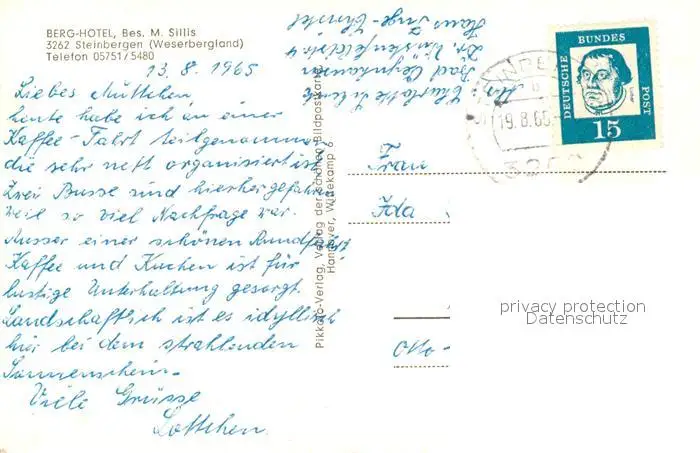 BERG-HOTEL, Bes. M. Sillis
3262 Steinbergen (Weserbergland)
Telefon 05751/5480
13.8.1965
Liebes Muttchen,
heute habe ich an einer
Kaffee-Fahrt teilgenommen
die sehr nett organisiert ist.
Zwei Busse sind hierher gefahren
weil so viel Nachfrage war.
Ausser einer schönen Rundfahrt
Kaffee und Kuchen ist für
lustige Unterhaltung gesorgt.
Landschaftlich ist es idyllisch
hier bei dem strahlenden
Sonnenschein.
Viele Grüsse
Lottchen.
Pikkolo-Verlag, Verlag der schönen Bildpostkarte
Hannover, Wittekamp 6
Charlotte
Bad Oeynhausen
Haus Inge-Christel
Frau
Ida
Otto-
DEUTSCHE
BUNDES
POST
15
19.8.65
privacy protection
Datenschutz